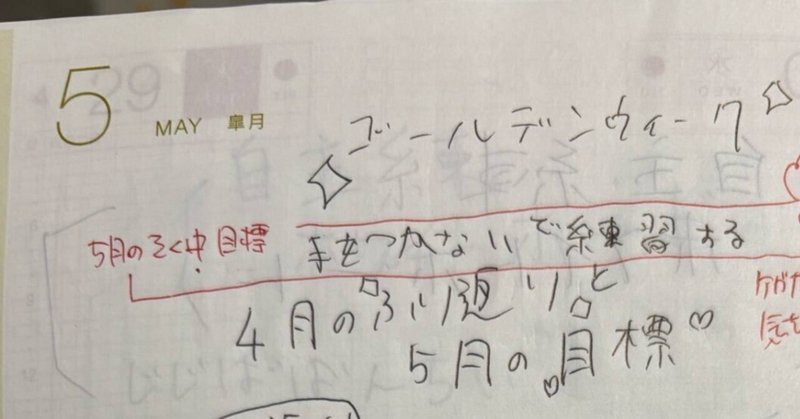 5
MAY 皐月
ゴールデンウィーク
5月の 目標
手をつかないで練習する
4月の『ふり返り』と
5月の目標♡
ケガ
気を